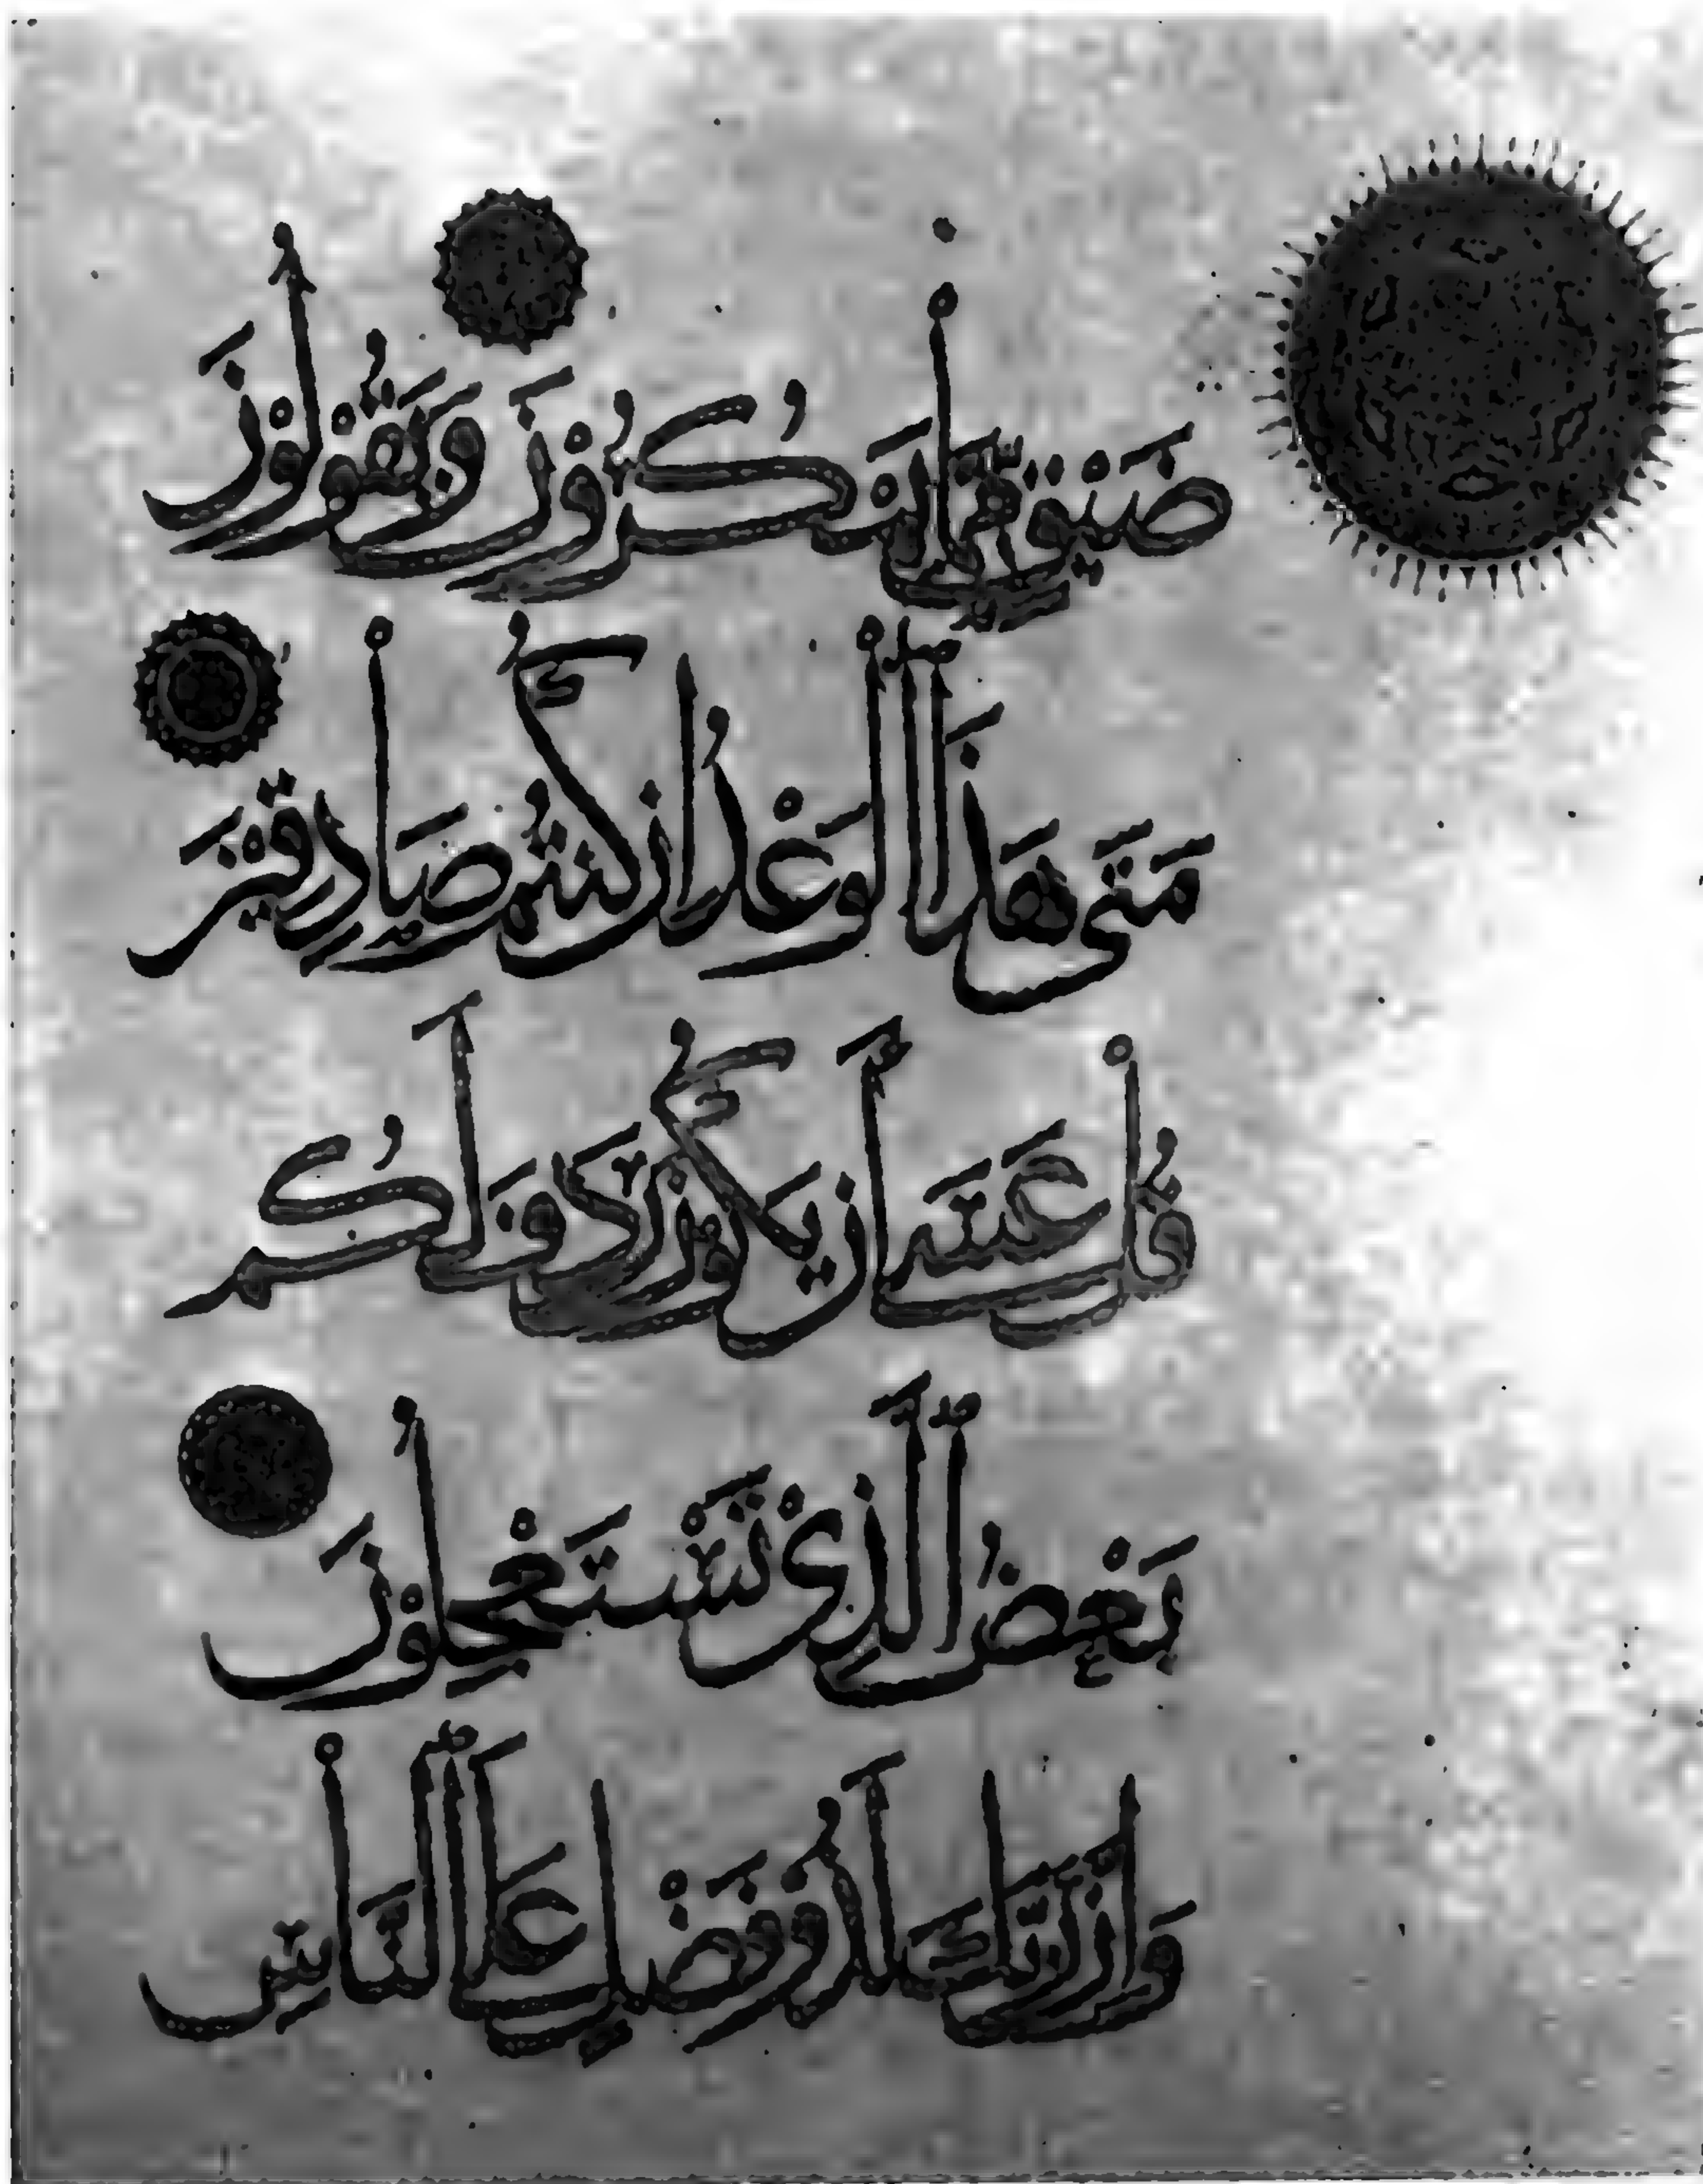 ضَيْقٍ مِمَّا يَمْكُرُوْنَ وَيَقُوْلُوْنَ
مَتَى هَذَا الْوَعْدُ اِنْ كُنْتُمْ صَادِقِيْنَ
قُلْ عَسَى اَنْ يَكُوْنَ رَدِفَ لَكُمْ
بَعْضُ الَّذِيْ تَسْتَعْجِلُوْنَ
وَاِنَّ رَبَّكَ لَذُوْ فَضْلٍ عَلَى النَّاسِ